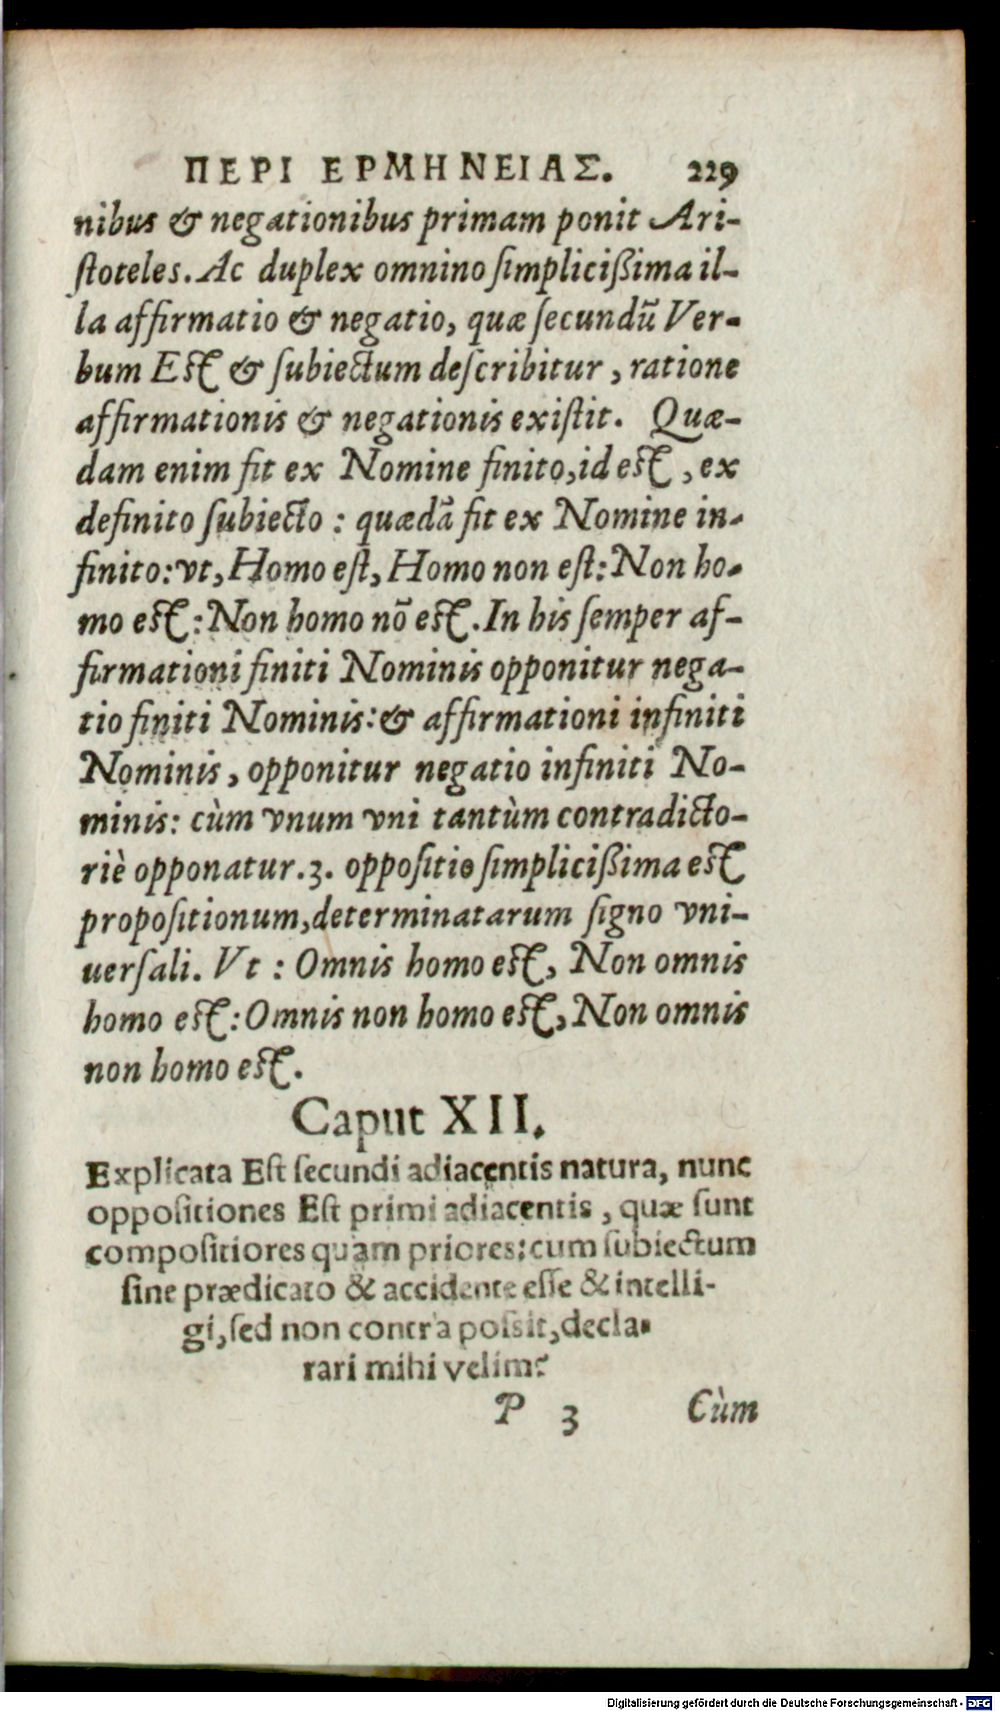 ΠΕΡΙ ΕΡΜΗΝΕΙΑΣ. 229
nibus & negationibus primam ponit Ari-
ſtoteles. Ac duplex omnino ſimplicißima il-
la affirmatio & negatio, quæ ſecundũ Ver-
bum Eſt & ſubiectum deſcribitur, ratione
affirmationis & negationis exiſtit. Quæ-
dam enim fit ex Nomine finito, id eſt, ex
definito ſubiecto: quædã fit ex Nomine in-
finito: vt, Homo eſt, Homo non eſt: Non ho-
mo eſt: Non homo nõ eſt. In his ſemper af-
firmationi finiti Nominis opponitur nega-
tio finiti Nominis: & affirmationi infiniti
Nominis, opponitur negatio infiniti No-
minis: cùm vnum vni tantùm contradicto-
riè opponatur. 3. oppoſitio ſimplicißima eſt
propoſitionum, determinatarum ſigno vni-
uerſali. Vt: Omnis homo eſt, Non omnis
homo eſt: Omnis non homo eſt, Non omnis
non homo eſt.
Caput XII.
Explicata Eſt ſecundi adiacentis natura, nunc
oppoſitiones Eſt primi adiacentis, quæ ſunt
compoſitiores quàm priores: cum ſubiectum
ſine prædicato & accidente eſſe & intelli-
gi, ſed non contrà poſsit, decla-
rari mihi velim?
P 3 Cùm
Digitalisierung gefördert durch die Deutsche Forschungsgemeinschaft - DFG